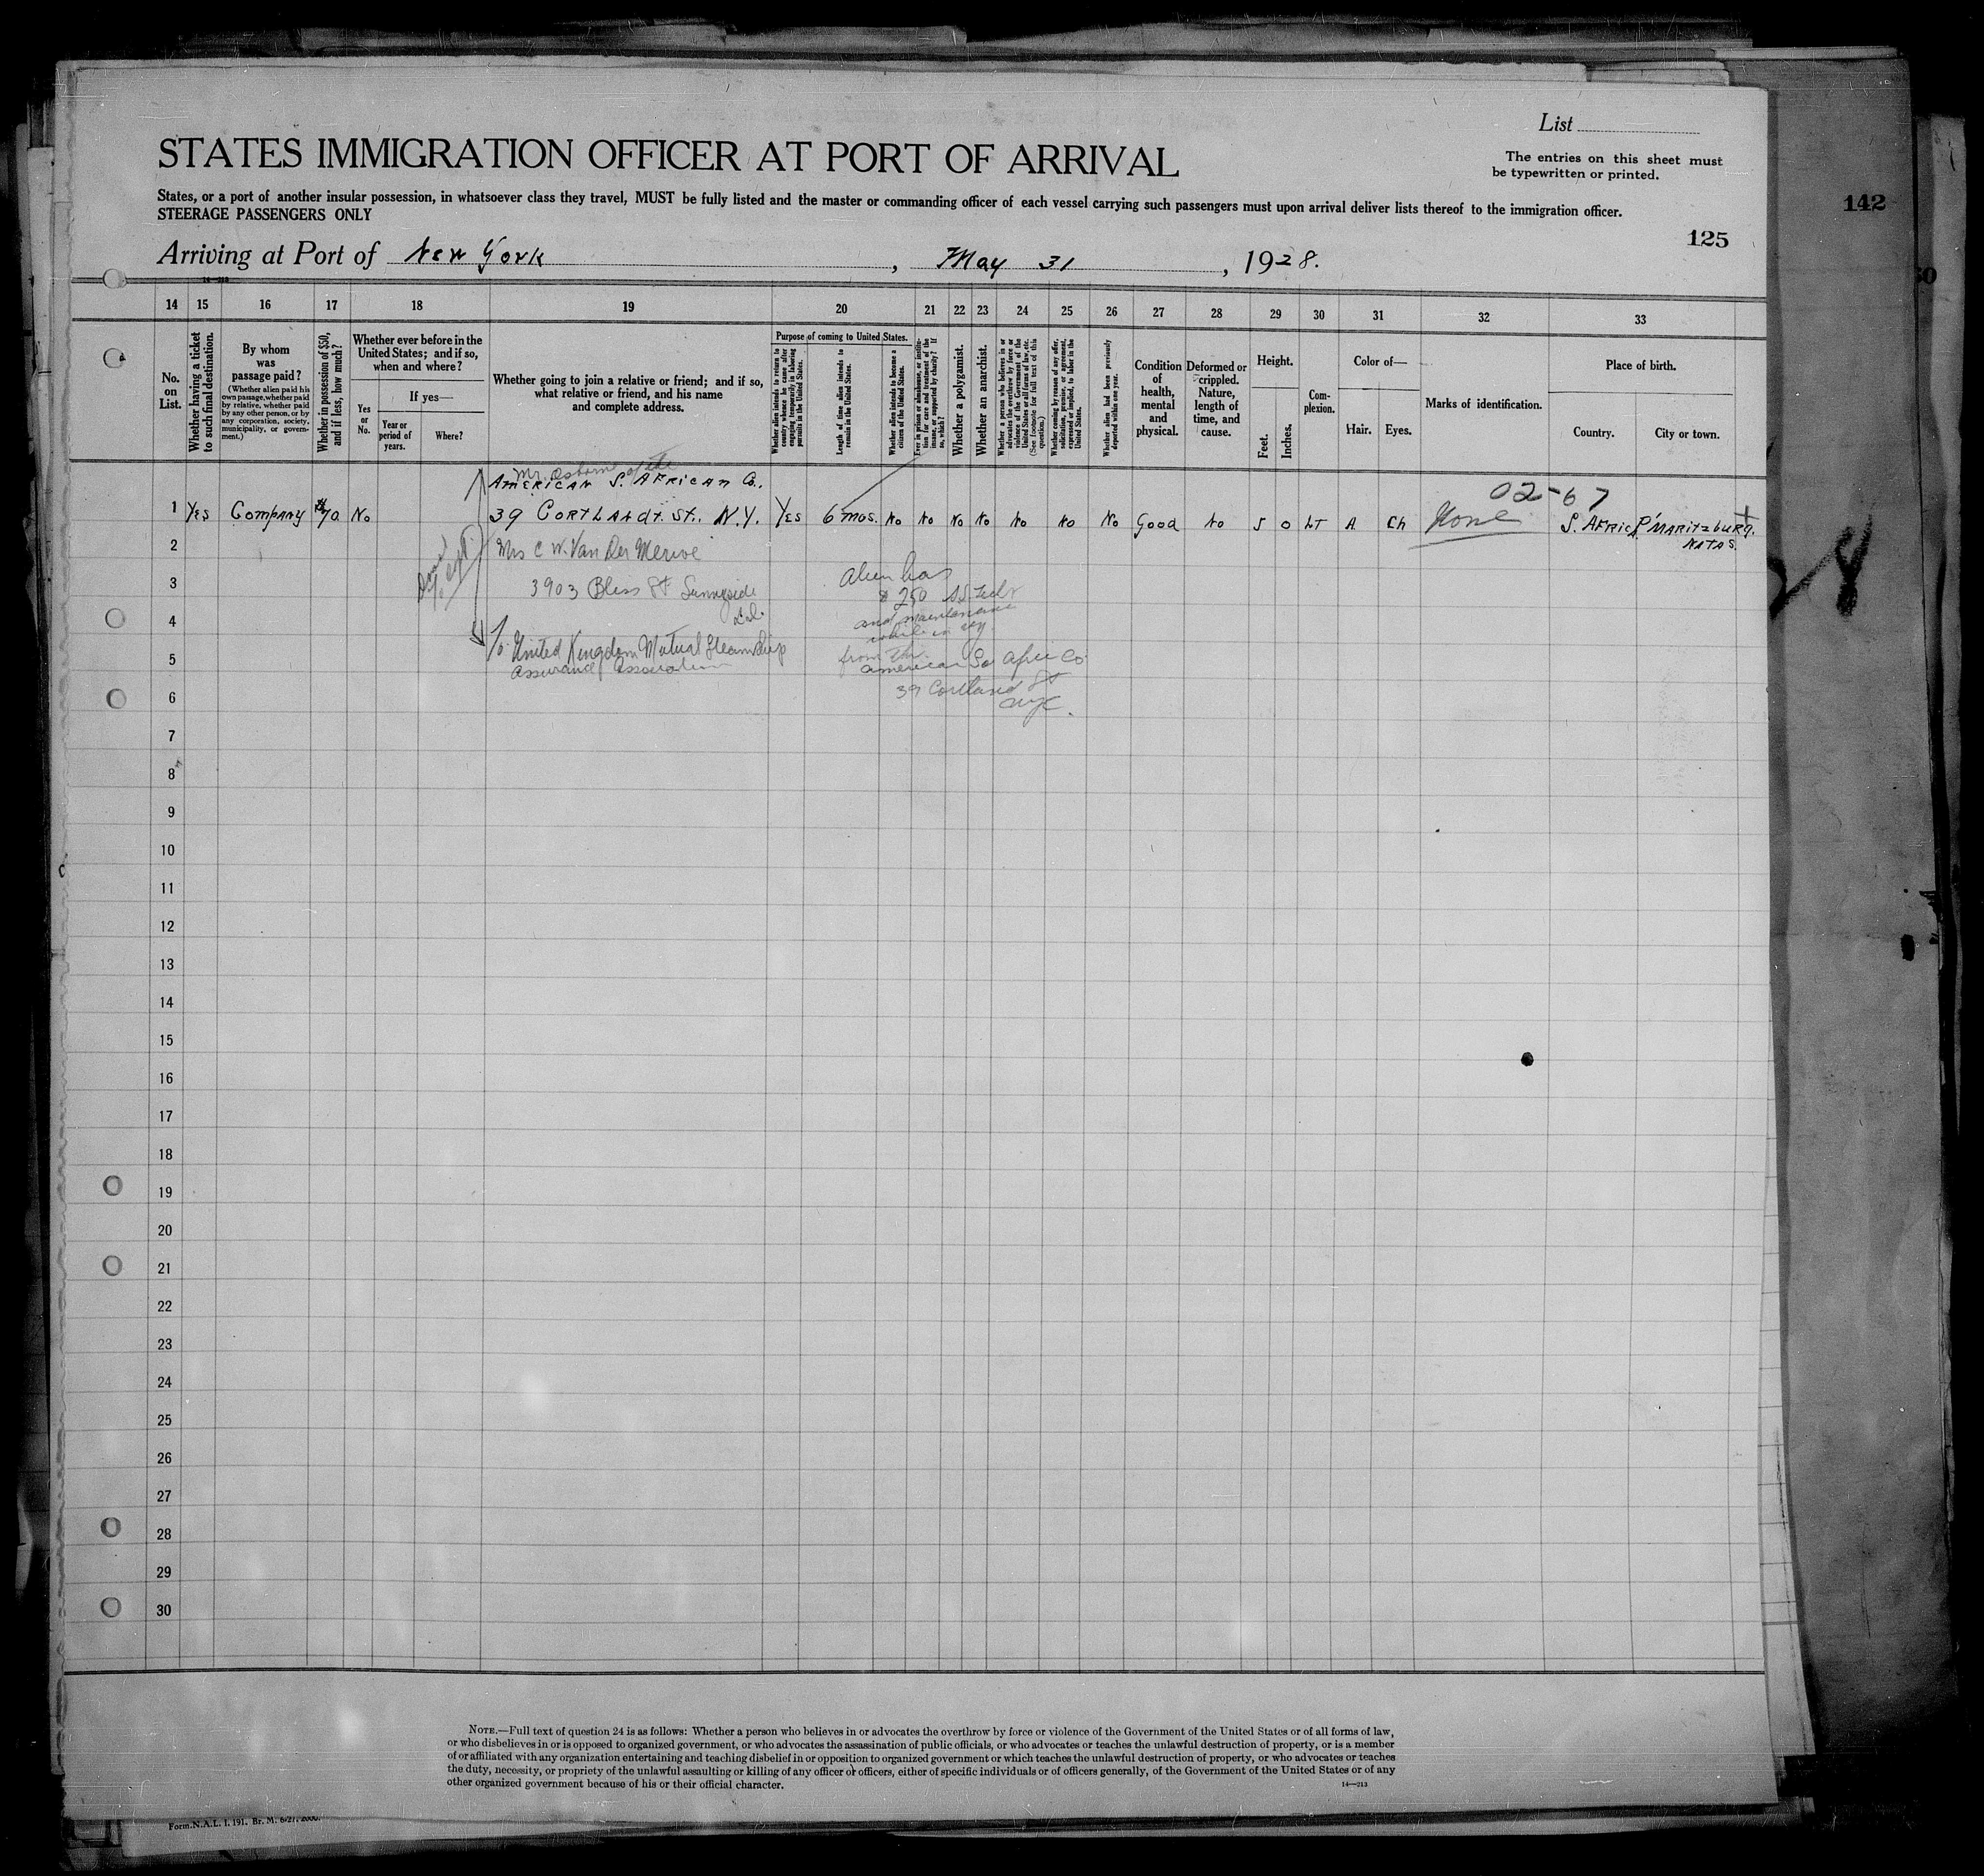 List
STATES IMMIGRATION OFFICER AT PORT OF ARRIVAL
The entries on this sheet must
be typewritten or printed.
States, or a port of another insular possession, in whatsoever class they travel, MUST be fully listed and the master or commanding officer of each vessel carrying such passengers must upon arrival deliver lists thereof to the immigration officer.
STEERAGE PASSENGERS ONLY
142
125
Arriving at Port of New York, May 31, 1928.
14 15 16 17 18 19 20 21 22 23 24 25 26 27 28 29 30 31 32 33
No. on List.
Whether having a ticket to such final destination.
By whom was passage paid?
(Whether alien paid his own passage, whether paid by relative, whether paid by any other person, or by any corporation, society, municipality, or government.)
Whether in possession of $50, and if less, how much?
Whether ever before in the United States; and if so, when and where?
Yes or No.
If yes—
Year or period of years.
Where?
Whether going to join a relative or friend; and if so, what relative or friend, and his name and complete address.
Purpose of coming to United States.
Whether alien intends to return to country whence he came after engaging temporarily in laboring pursuits in the United States.
Length of time alien intends to remain in the United States.
Whether alien intends to become a citizen of the United States.
Ever in prison or almshouse, or institution for care and treatment of the insane, or supported by charity? If so, which?
Whether a polygamist.
Whether an anarchist.
Whether a person who believes in or advocates the overthrow by force or violence of the Government of the United States or all forms of law, etc. (See footnote for full text of this question.)
Whether coming by reason of any offer, solicitation, promise, or agreement, expressed or implied, to labor in the United States.
Whether alien had been previously deported within one year.
Condition of health, mental and physical.
Deformed or crippled. Nature, length of time, and cause.
Height.
Feet.
Inches.
Complexion.
Color of—
Hair.
Eyes.
Marks of identification.
Place of birth.
Country.
City or town.
Mr. Osborne of the
American S. African Co.
02-67
1 Yes Company $70 No 39 Cortlandt. St. N.Y. Yes 6 mos. No No No No No No No Good No 5 0 LT None S. Africa P'Maritzburg.
2 Mrs C W. Van Der Merwe
3 3903 Bliss St Sunnyside
L.I.
Alien has
$250
and maintenance
while in
4
United Kingdom Mutual Steamship
Assurance Association
from the
American So Afri Co
5
39 Cortland St
NYC.
6
7
8
9
10
11
12
13
14
15
16
17
18
19
20
21
22
23
24
25
26
27
28
29
30
NOTE.—Full text of question 24 is as follows: Whether a person who believes in or advocates the overthrow by force or violence of the Government of the United States or of all forms of law,
or who disbelieves in or is opposed to organized government, or who advocates the assassination of public officials, or who advocates or teaches the unlawful destruction of property, or is a member
of or affiliated with any organization entertaining and teaching disbelief in or opposition to organized government or which teaches the unlawful destruction of property, or who advocates or teaches
the duty, necessity, or propriety of the unlawful assaulting or killing of any officer or officers, either of specific individuals or of officers generally, of the Government of the United States or of any
other organized government because of his or their official character.
14—213
Form.N.A.L. 1. 191. Br. M. 6/27. 2000.